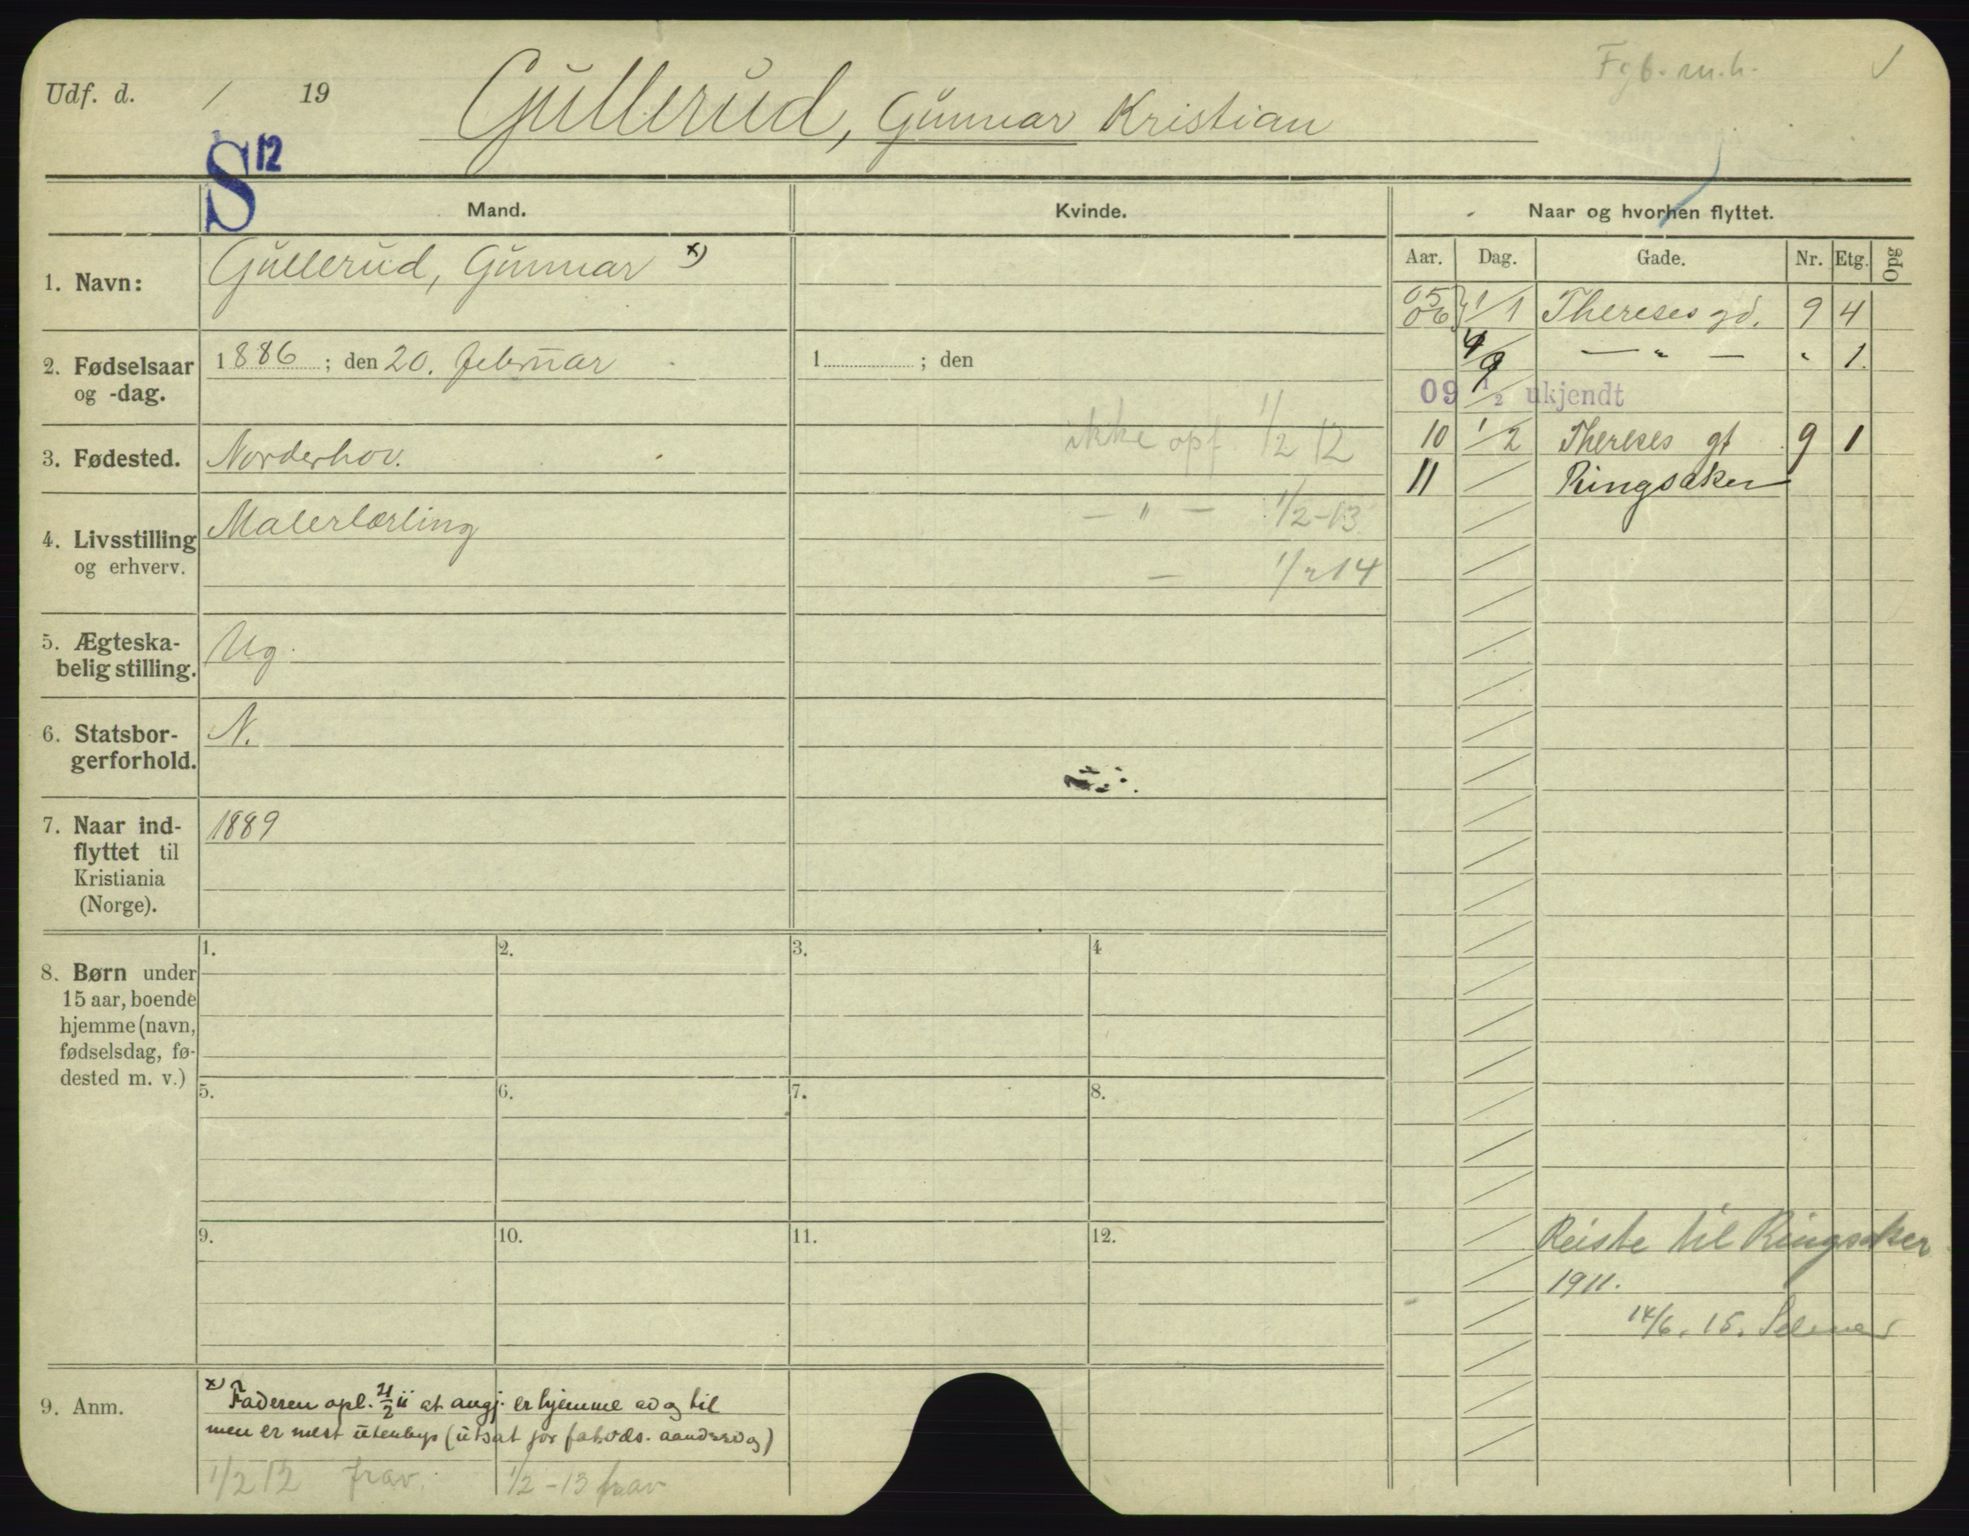 Fgb. m. h.
Udf. d. / 19
Gullerud, Gunnar Kristian
S 12
Mand.
Kvinde.
Naar og hvorhen flyttet.
Aar. Dag. Gade. Nr. Etg. Opg
1. Navn: Gullerud, Gunnar x)
2. Fødselsaar og -dag.
1886; den 20. februar
1 ; den
3. Fødested. Norderhov.
ikke opf. 1/2 12
4. Livsstilling og erhverv. Malerlærling
— " — 1/2-13.
— 1/2 14
5. Ægteska-
belig stilling. Ug.
6. Statsbor-
gerforhold. N.
7. Naar ind-
flyttet til
Kristiania
(Norge).
1889
05
06 } 1/1 Thereses gd. 9 4
4/9 — " — " 1.
09 1/2 ukjendt
10 1/2 Thereses gt 9 1
11 / Ringsaker
8. Børn under
15 aar, boende
hjemme (navn,
fødselsdag, fø-
dested m. v.)
1. 2. 3. 4
5. 6. 7. 8.
9. 10. 11. 12.
Reiste til Ringsaker
1911.
14/6. 15. Selmer
9. Anm.
x) Faderen opl. 21/2 11 at angj. er hjemme av og til
men er mest utenbys (utsat for aandssvag)
1/2 12 frav.
1/2-13 frav